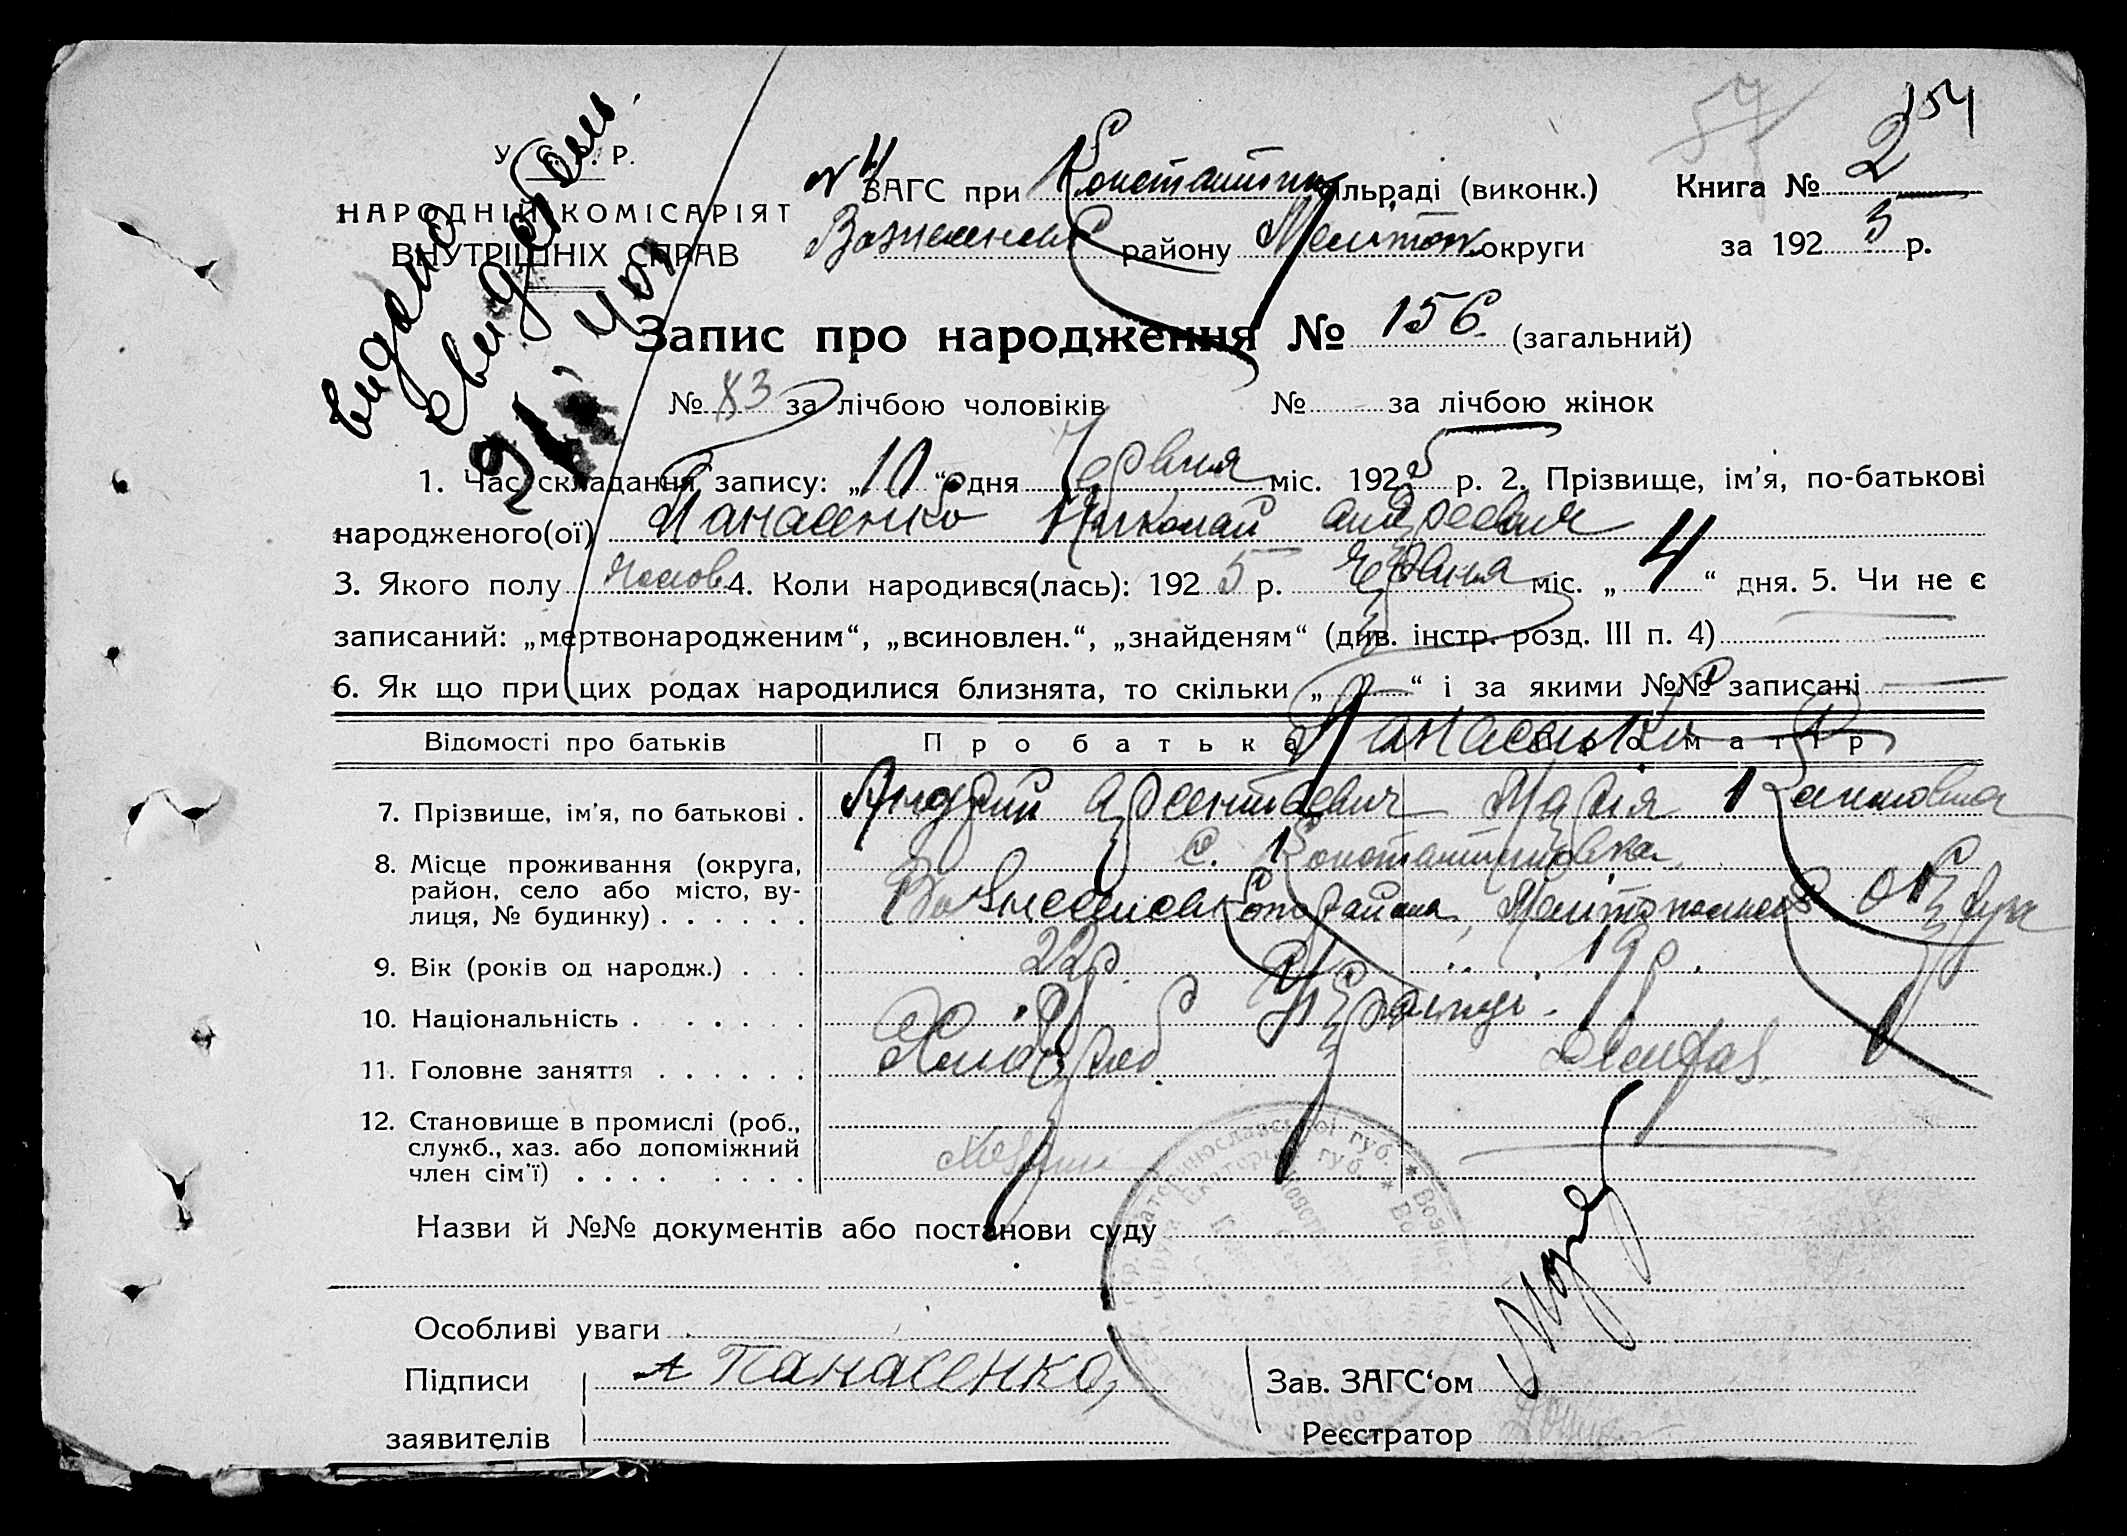 154
57
У. С. Р. Р.
НАРОДНІЙ КОМІСАРІЯТ
ВНУТРІШНІХ СПРАВ
видано
свидетель
ЗАГС при Константин сільраді (виконк.) Книга № 2
району Мелітоп округи за 1925 р.
Запис про народження № 156 (загальний)
№ 83 за лічбою чоловіків № за лічбою жінок
1. Час складання запису: „10“ дня Червня міс. 1925 р. 2. Прізвище, ім’я, по-батькові
народженого(ої) Панасенко Николай Андреевич
3. Якого полу чолов. 4. Коли народився(лась): 1925 р. Червня міс. „4“ дня. 5. Чи не є
записаний: „мертвонародженим“, „всиновлен.“, „знайденям“ (див. інстр. розд. III п. 4)
6. Як що при цих родах народилися близнята, то скільки „ “ і за якими №№ записані
Відомості про батьків Про батька Про матір
Панасенки
7. Прізвище, ім’я, по батькові . Андрий Арсентьевич Марія
8. Місце проживання (округа, район, село або місто, вулиця, № будинку) с. Константиновка
района, Мелітопольск округи
9. Вік (років од народж.) . . . 22р. 19р.
10. Національність . Українці.
11. Головне заняття Хлібороб
12. Становище в промислі (роб., служб., хаз. або допоміжний член сім’ї)
Назви й №№ документів або постанови суду
Особливі уваги
Підписи А Панасенко, Зав. ЗАГС‘ом
заявителів Реєстратор